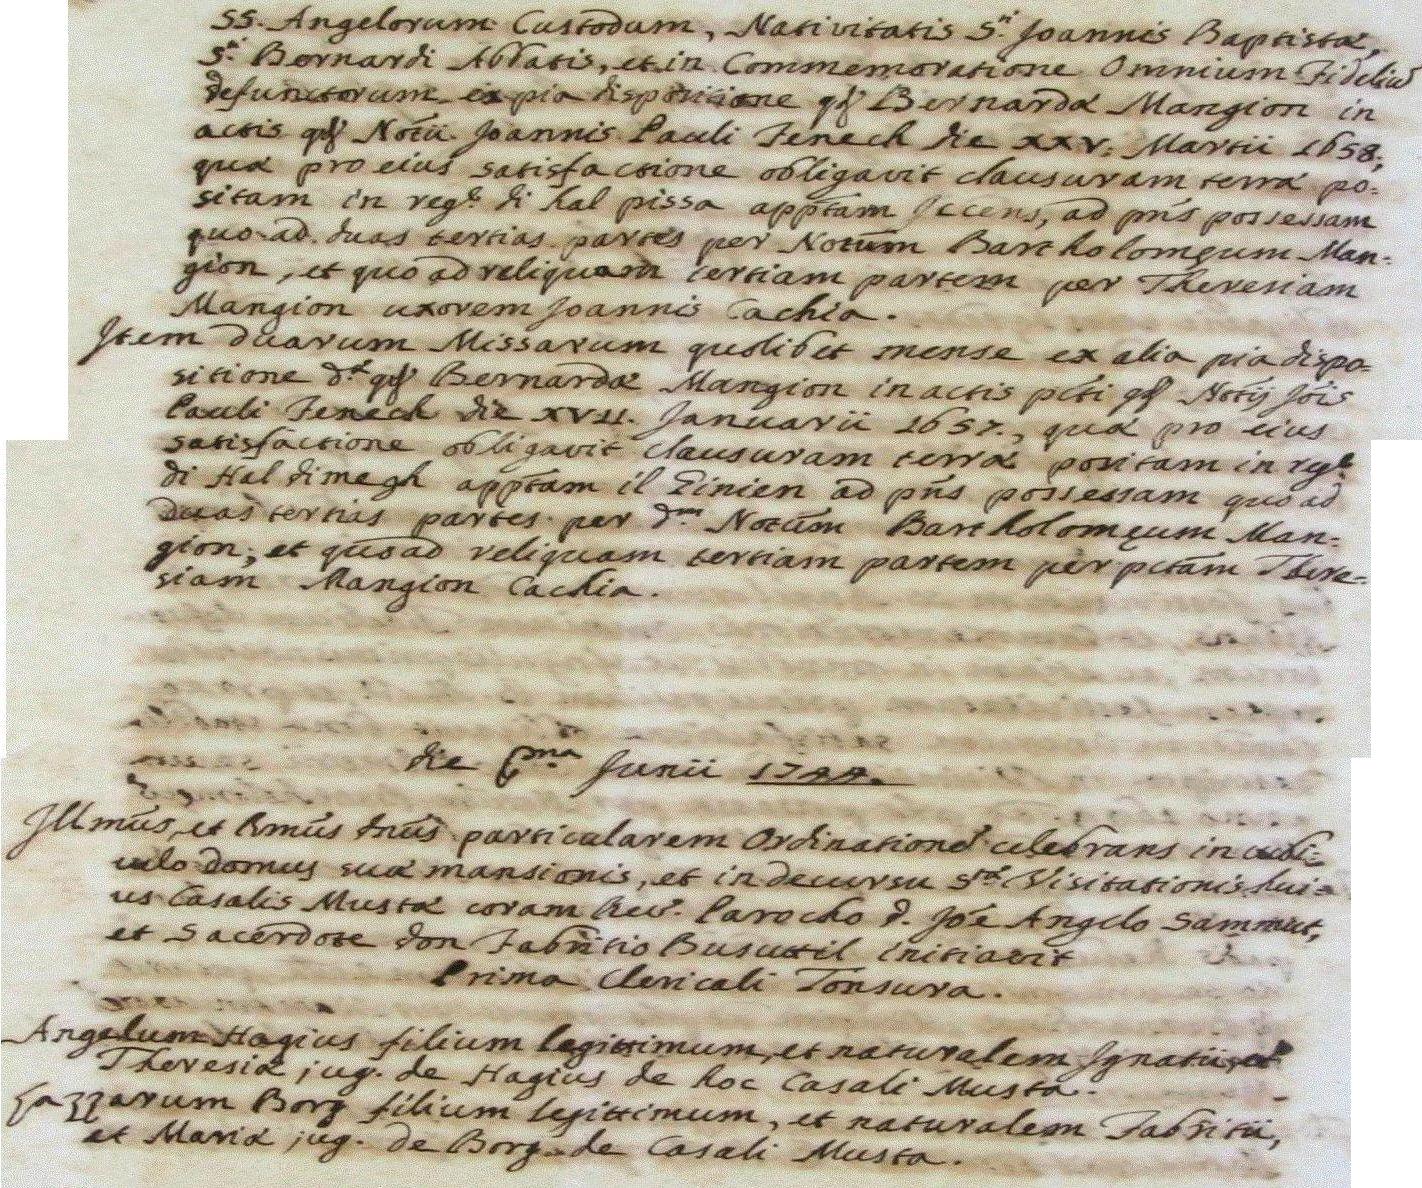 SS. Angelorum Custodum, Nativitatis S.ti Joannis Baptistæ,
S.ti Bernardi Abbatis, et in Commemoratione Omnium Fideliū
defunctorum ex pia dispositione qď Bernardæ Mangion in
actis qď Notii Joannis Pauli Fenech die xxv. Martii 1658;
quæ pro eius satisfactione obligavit clausuram terræ po-
sitam in reg.e di hal pissa appt̄am Jccens, ad pn̄s possessam
quo ad duas tertias partes per Notūm Bartholomęum Man-
gion, et quo ad reliquam tertiam partem per Theresiam
Mangion uxorem Joannis Cachia.
Jtem duarum Missarum quolibet mense ex alia pia dispo-
sitione d.æ qď Bernardæ Mangion in actis pc̄ti qď Notij Jōis
Pauli Fenech die XVII. Januarii 1657., quæ pro eius
satisfactione obligavit clausuram terræ positam in rg.e
di Hal dimegh appt̄am il Ginien ad pn̄s possessam quo ad
duas tertias partes per d.um Notūm Bartholomęum Man-
gion, et quo ad reliquam tertiam partem per pc̄tam There-
siam Mangion Cachia.
die pma Junii 1744.
Jllmūs, et Rmūs Dnūs particularem Ordinationē celebrans in cubi-
culo domus suæ mansionis, et in decursu S.tæ Visitationis hui-
us Casalis Mustæ coram Rev. Parocho D. Joē Angelo Sammut,
et Sacerdote Don Fabritio Busuttil initiavit
Prima Clericali Tonsura.
Angelum Hagius filium legittimum, et naturalem Jgnatii, et
Theresiæ jug. de Hagius de hoc Casali Musta.
Lazzarum Borg filium legittimum, et naturalem Fabritii,
et Mariæ jug. de Borg de Casali Musta.